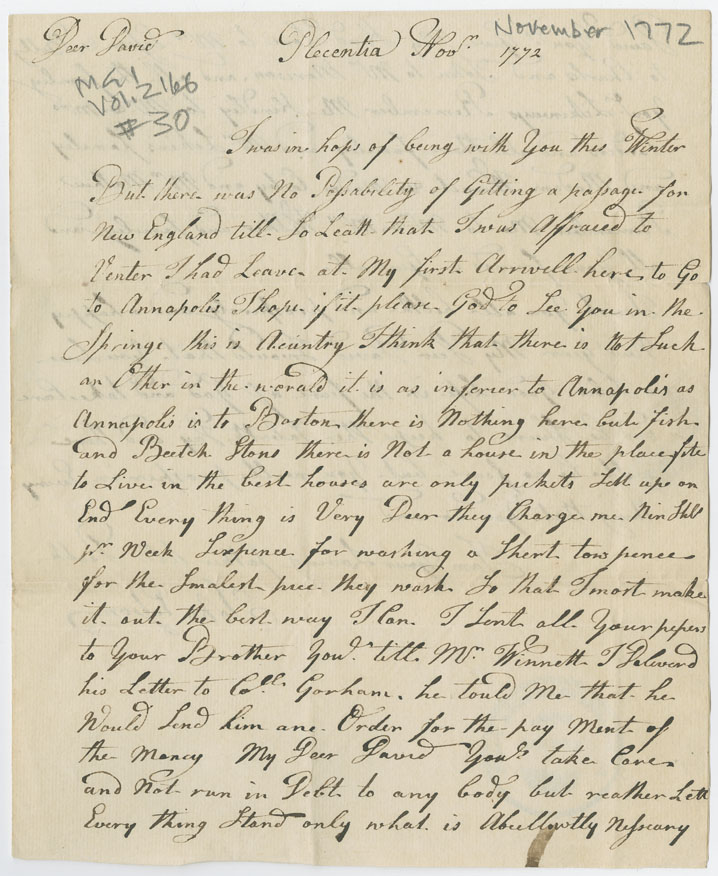 November 1772
Deer David Plecentia Novr. 1772
MG1
Vol. 2166
#30
I was in hops of being with You this Winter
But there was No Possability of Gitting a passage for
New England till So Leatt that I was Affraeed to
Venter I had Leave at My first Arrwell here to Go
to Annapolis I hope if it please God to See You in the
Springe this is A cuntry I think that there is Not Such
an Other in the worald it is as inferier to Annapolis as
Annapolis is to Boston there is Nothing here but fish
and Beetch Stons there is Not a house in the place fite
to Live in the best houses are only pickets Sett up on
End Every thing is Very Deer they Charge me Nin Shll
pr. Week Sixpence for washing a Shert tow pence
for the Smalest pece they wash So that I most make
it out the best way I Can I Sent all Your pepers
to Your Brother You'l till Mr. Winnett I Delwerd
his Letter to Coll. Gorham. he tould Me that he
Would Send him ane Order for the pay Ment of
the Money My Deer David You'l take Care
and Not run in Debt to any body but reather Lett
Every thing Stand only what is Abcellowtly Nessecary